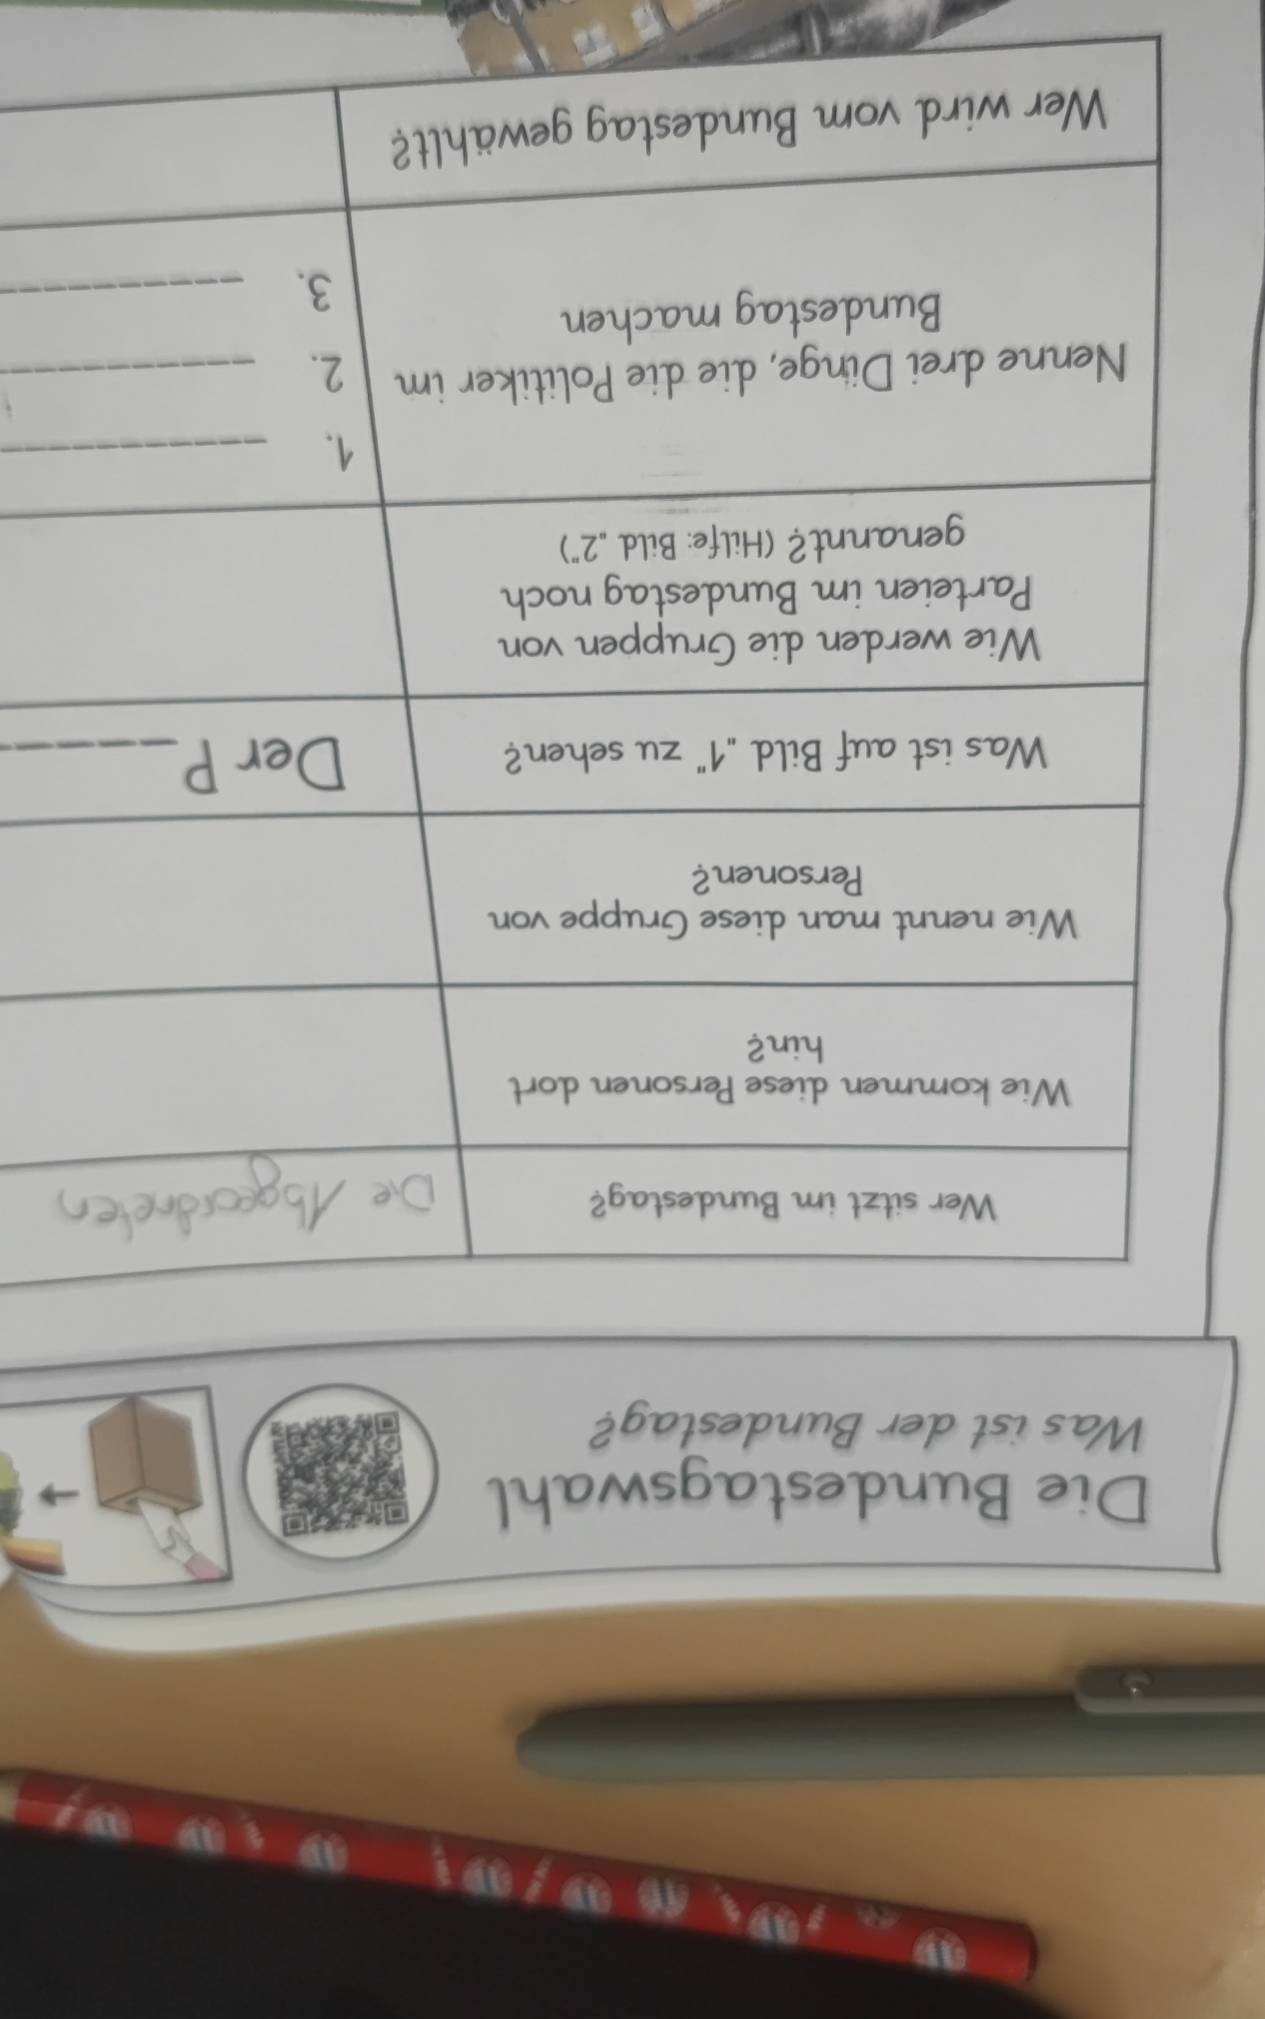 Die Bundestagswahl
Was ist der Bundestag?
Wer sitzt im Bundestag?
Die Abgeordneten
Wie kommen diese Personen dort
hin?
Wie nennt man diese Gruppe von
Personen?
Was ist auf Bild „1“ zu sehen?
Der P______
Wie werden die Gruppen von
Parteien im Bundestag noch
genannt? (Hilfe: Bild „2“)
Nenne drei Dinge, die die Politiker im
Bundestag machen
1. ___________
2. ___________
3. ___________
Wer wird vom Bundestag gewählt?